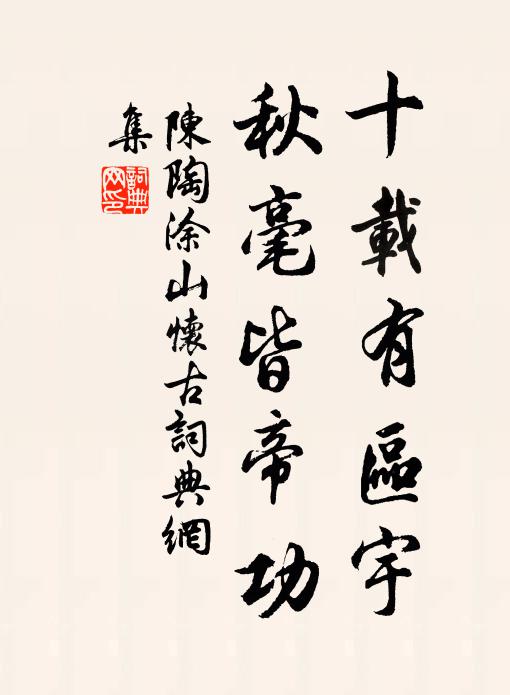 十載有區宇
秋毫皆帝功
陳陶涂山懷古詞典網
集
詞典網印